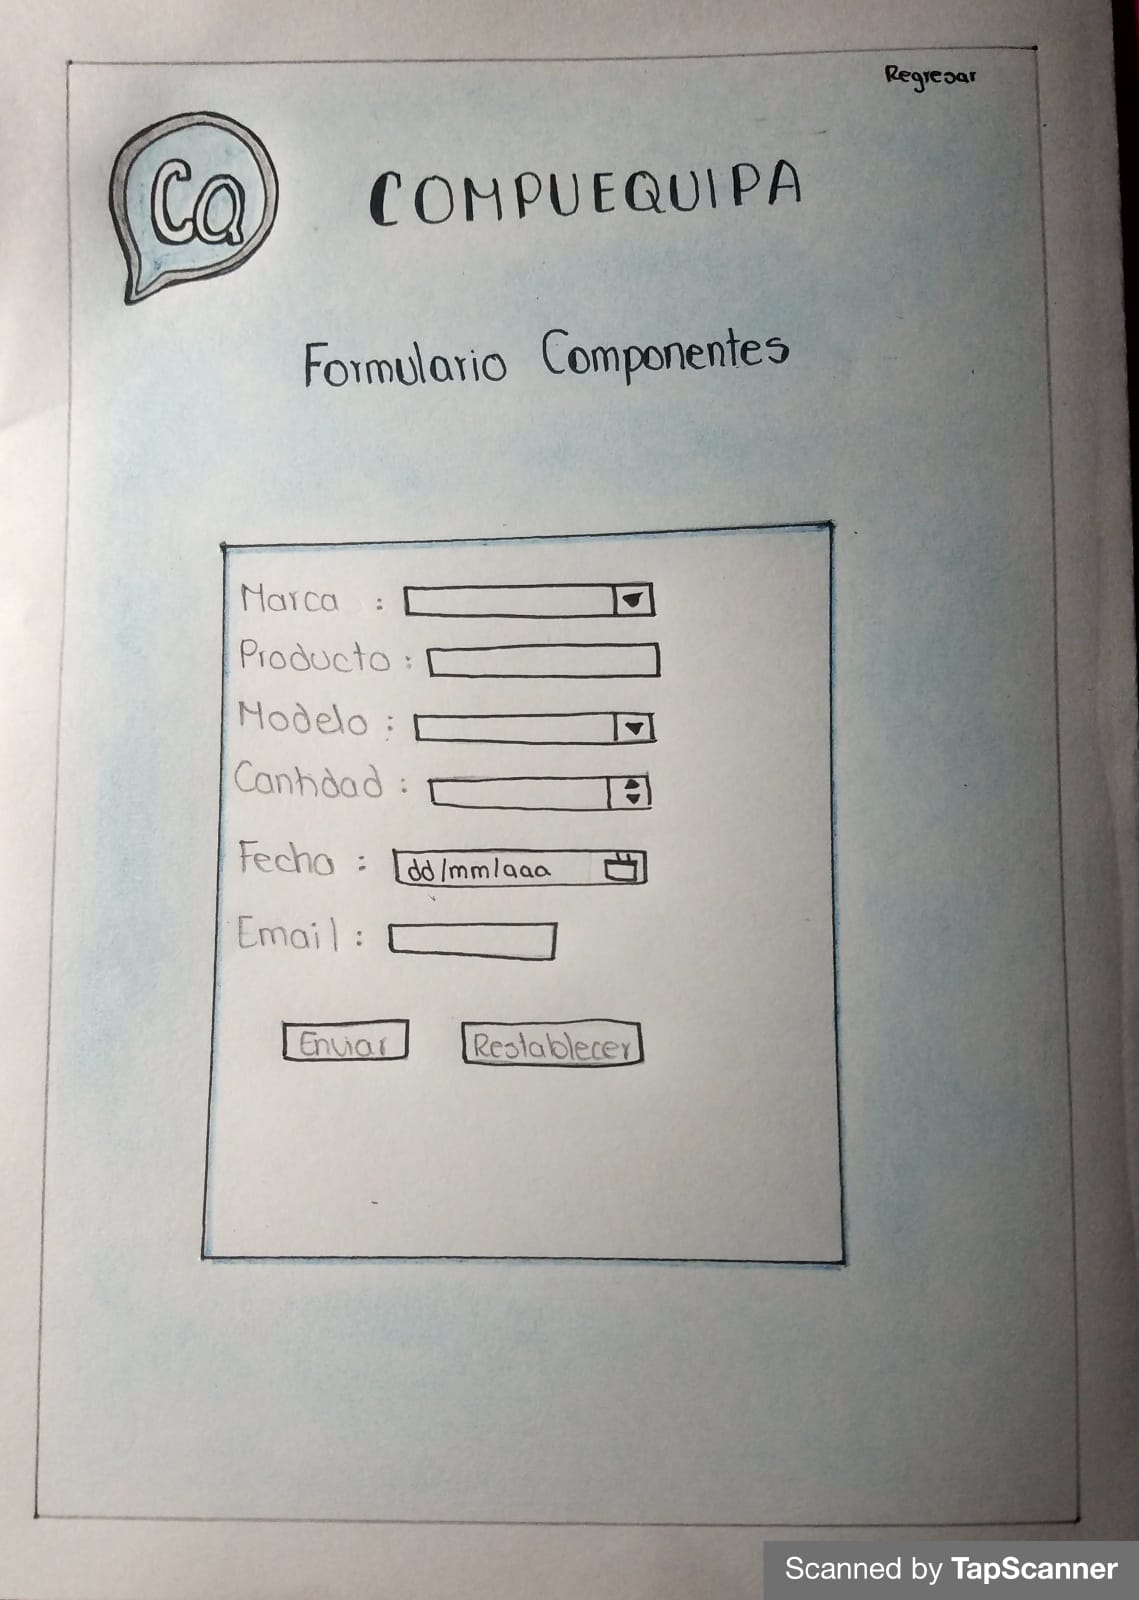 Regresar
CQ
COMPUEQUIPA
Formulario Componentes
Marca :
Producto :
Modelo :
Cantidad :
Fecha : dd/mm/aaa
Email :
Enviar Restablecer
Scanned by TapScanner